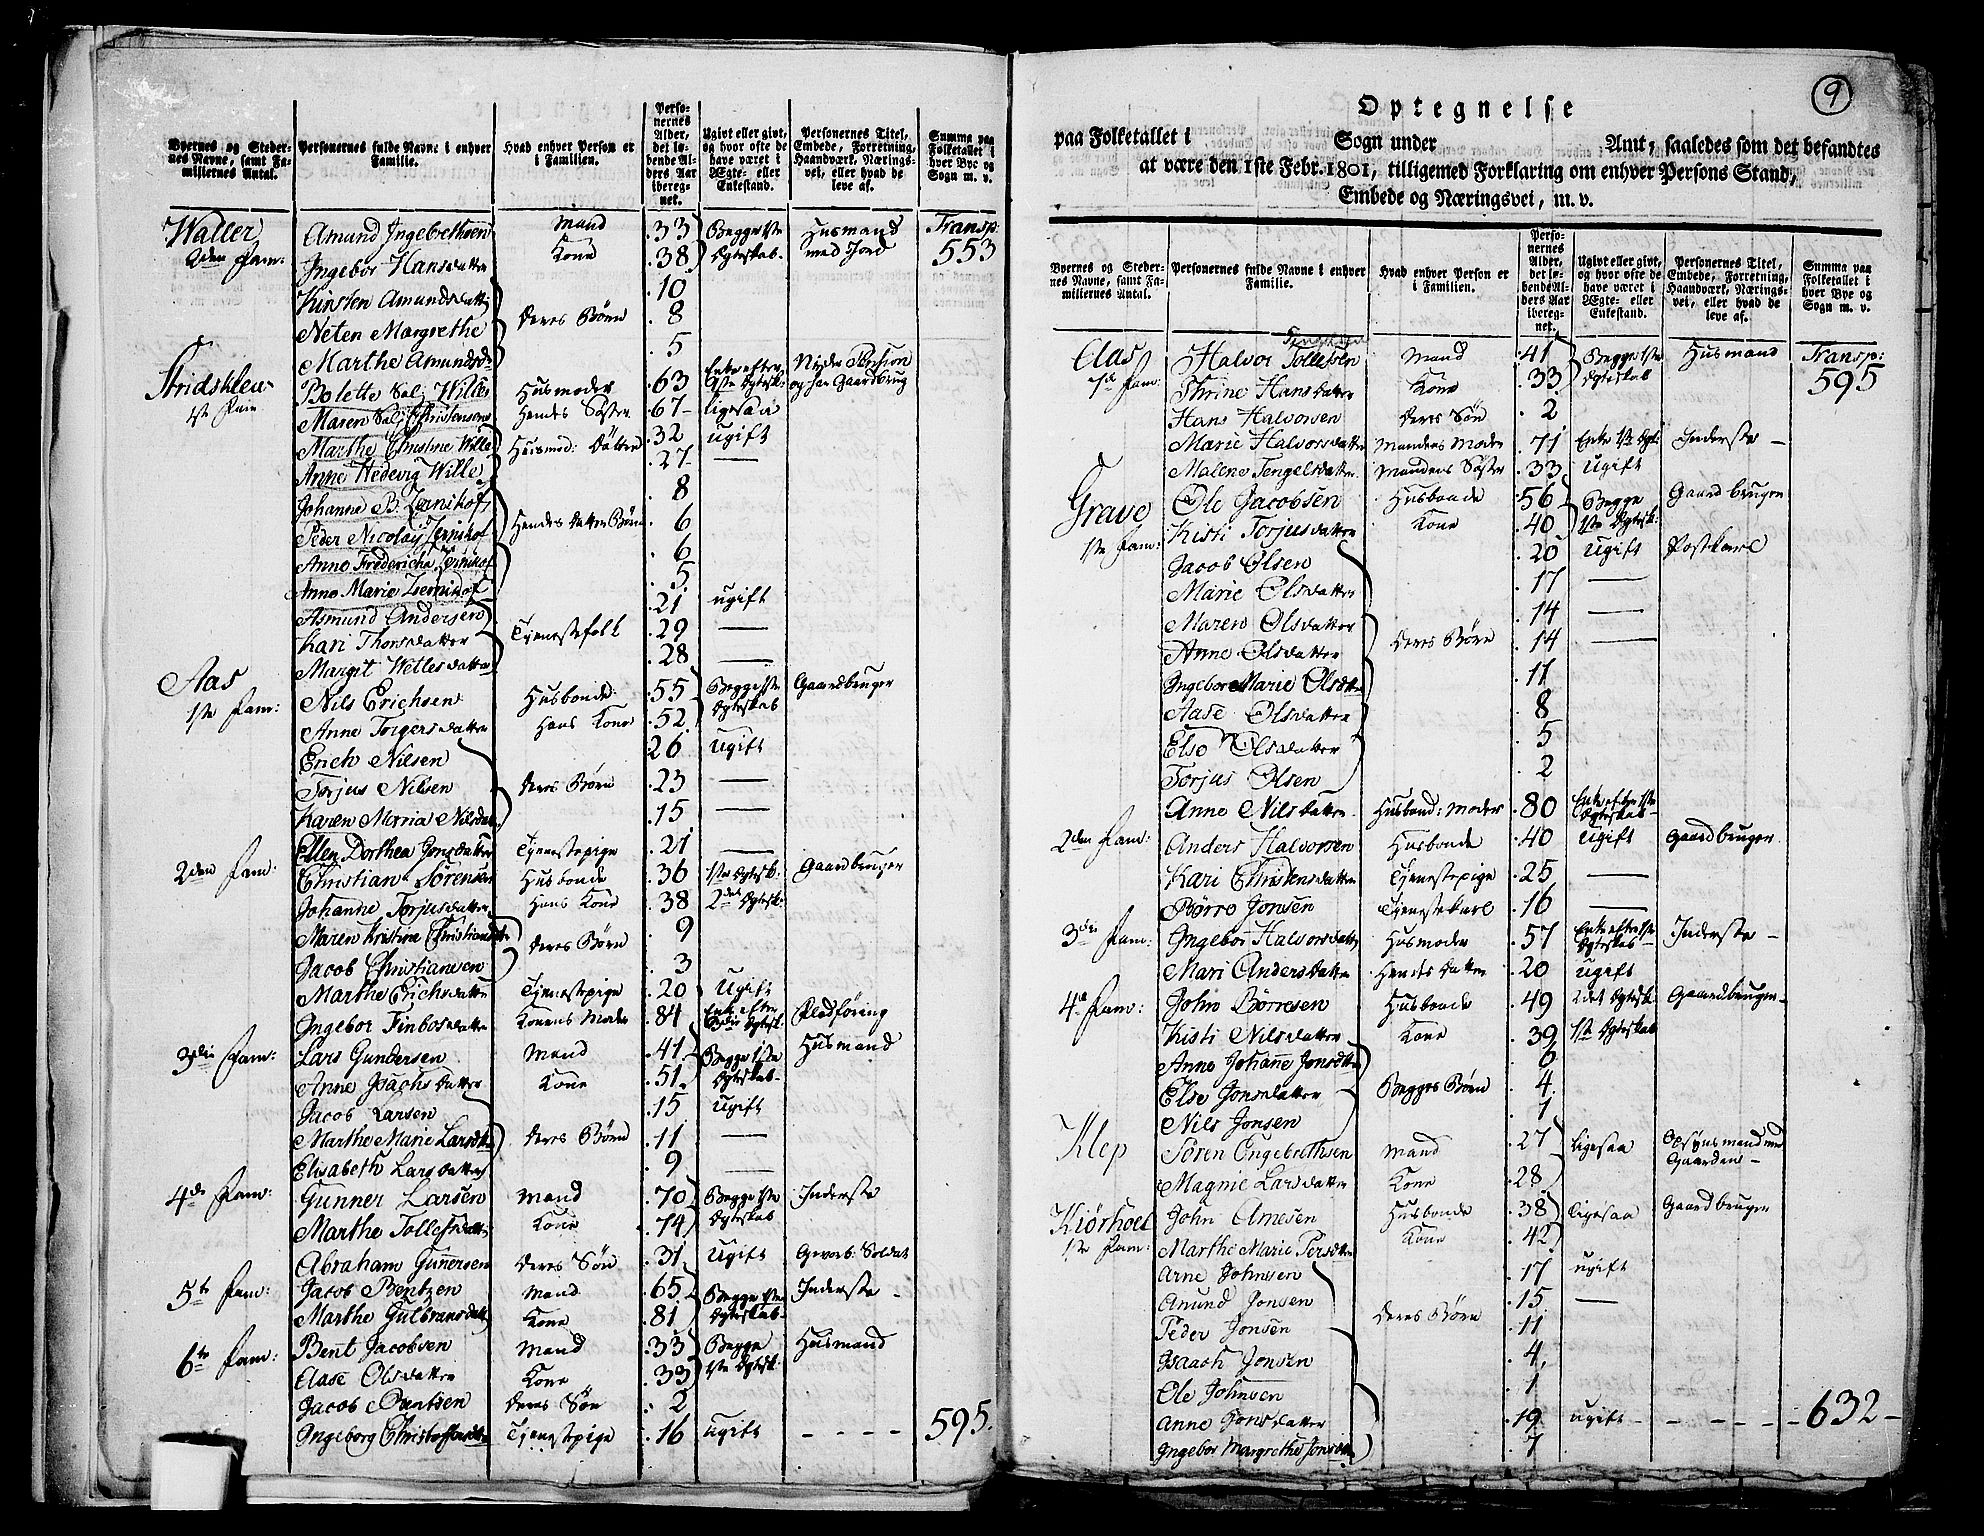 Byernes og Steder-
nes Navne, samt Fa-
miliernes Antal.
Personernes fulde Navne i enhver
Familie.
Hvad enhver Person er
i Familien.
Perso-
nernes
Alder,
det lø-
bende Al-
ders Aar
ibereg-
net.
Ugivt eller givt,
og hvor ofte de
have været i
Ægte- eller
Enkestand.
Personernes Titel,
Embede, Forretning,
Haandværk, Nærings-
vei, eller hvad de
leve af.
Summa paa
Folketallet i
hver Bye og
Sogn m. v.
Waller 2den Fam: Amund Ingebrethsen Mand 33 Begge 1ste Husmand Transp:
Ingebor Hansdatter Kone 38 Egteskab. med Jord 553
Kirsten Amundsdatt: 10
Neten Margrethe Deres Børn 8
Marthe Amundsd: 5
1ste Fam Bolette Sal: Willes Husmoder 63 Enke efter
Maren Sal: Christensens Hendes Søster 67 ligesaa
Marthe Christine Wille Huusmod: Døttre 32 ugift
Anne Hedevig Wille 27 —
Johanne B: 8
Peder Nicolay Hendes Datter Børn 6
Anne Fredericha 6
Anne Marie 5
Asmund Andersen 21 ugift
Kari Thorsdatter Tjenestefolk 29 —
Margit Wetlesdatter 28 —
Aas 1ste Fam: Nils Erichsen Husbonde 55 Begge 1ste Gaardbruger
Anne Torgersdatter Hans Kone 52 Egteskab
Erich Nilsen 26 ugift
Torjus Nilsen Deres Børn 23 —
Karen Maria Nilsdat: 15 —
Ellen Dorthea Jonsdatter Tjenestepige 21 —
2den Fam: Christian Sørensen Husbonde 36 1ste Egtesk: Gaardbruger
Johanne Torjusdatter Hans Kone 38 2det Egtesk:
Maren Kristine Christiansd: 9
Jacob Christiansen Deres Børn 3
Marthe Erichsdatter Tjenestepige 20 Ugift
Ingebor Finbosdatter Konens Moder 84 Enke efter Egtesk: Pledføring
3die Fam: Lars Gundersen Mand 41 Begge 1ste Husmand
Anne Isachsdatter Kone 51 Egteskab
Jacob Larsen 15 ugift
Marthe Marie Larsdtr Deres Børn 11 —
Elisabeth Larsdatter 9 —
4de Fam: Gunner Larsen Mand 70 Begge 1ste Inderste
Marthe Tollefsdatter Kone 74 Egteskab
Abraham Gunersen Deres Søn 31 Ugift Gevorb: Soldat
5te Fam: Jacob Bentzen Mand 65 Begge 1ste Inderste
Marthe Gulbransdatt: Kone 81 Egteskab
6te Fam: Bent Jacobsen Mand 33 Begge Husmand
Aase Olsdatter Kone 33 1ste Egtesk:
Jacob Bentsen Deres Søn 2
Ingeborg Christofersdtr Tjenestepige 16 ugift 595.
9
Optegnelse
paa Folketallet i Sogn under Amt, saaledes som det befandtes
at være den 1ste Febr. 1801, tilligemed Forklaring om enhver Persons Stand,
Embede og Næringsvei, m. v.
Byernes og Steder-
nes Navne, samt Fa-
miliernes Antal.
Personernes fulde Navne i enhver
Familie.
Hvad enhver Person er
i Familien.
Perso-
nernes
Alder,
det lø-
bende Al-
ders Aar
ibereg-
net.
Ugivt eller givt,
og hvor ofte de
have været i
Ægte- eller
Enkestand.
Personernes Titel,
Embede, Forretning,
Haandværk, Nærings-
vei, eller hvad de
leve af.
Summa paa
Folketallet i
hver Bye og
Sogn m. v.
Aas 7de Fam: Halvor Tollefsen Mand 41 Begge 1ste Husmand Transp:
Thrine Hansdatter Kone 33 Egteskab 595
Hans Halvorsen Deres Søn 2
Marie Halvorsdatter Mandens Moder 71 Enke 1ste Egt: Inderste
Malene Tengelsdatter Mandens Søster 33 Ugift
Grave 1ste Fam: Ole Jacobsen Husbonde 56 Begge Gaardbruger
Kisti Torjusdatter Kone 40 1ste Egtesk:
Jacob Olsen 20 ugift Postkarl
Marie Olsdatter 17 —
Maren Olsdatter 14 —
Anne Olsdatter Deres Børn 14 —
Ingebor Marie Olsdtr 11
Aase Olsdatter 8
Else Olsdatter 5
Torjus Olsen 2
Anne Nilsdatter Husbond: Moder 80 Enke efter 1ste Egteskab
2den Fam: Anders Halvorsen Husbonde 40 ugift Gaardbruger
Kari Christensdatter Tjenestepige 25 —
Børre Jonsen Tjenestekarl 16 —
3die Fam: Ingebor Halvorsdatter Husmoder 57 Enke efter 1ste Egteskab Inderste
Mari Andersdatter Hendes Datter 20 ugift
4de Fam: John Børresen Husbonde 49 2det Egtesk: Gaardbruger
Kisti Nilsdatter Kone 39 1ste Egteskab
Anne Johane Jonsdtr 6
Else Jonsdatter Begges Børn 4
Nils Jonsen 1
Klep Søren Engebrethsen Mand 27 ligesaa Opsynsmand ved Gaarden
Magnie Larsdatter Kone 28
Kiørholt 1ste Fam: John Arnesen Husbonde 38 ligesaa Gaardbruger
Marthe Marie Persdtr Kone 42
Arne Johnsen 17 ugift
Anund Jonsen 15 —
Peder Jonsen Deres Børn 11
Isaach Jonsen 4
Ole Johnsen 1
Anne Jonsdatter 19 ugift 632
Ingebor Margrethe Jonsdtr 7